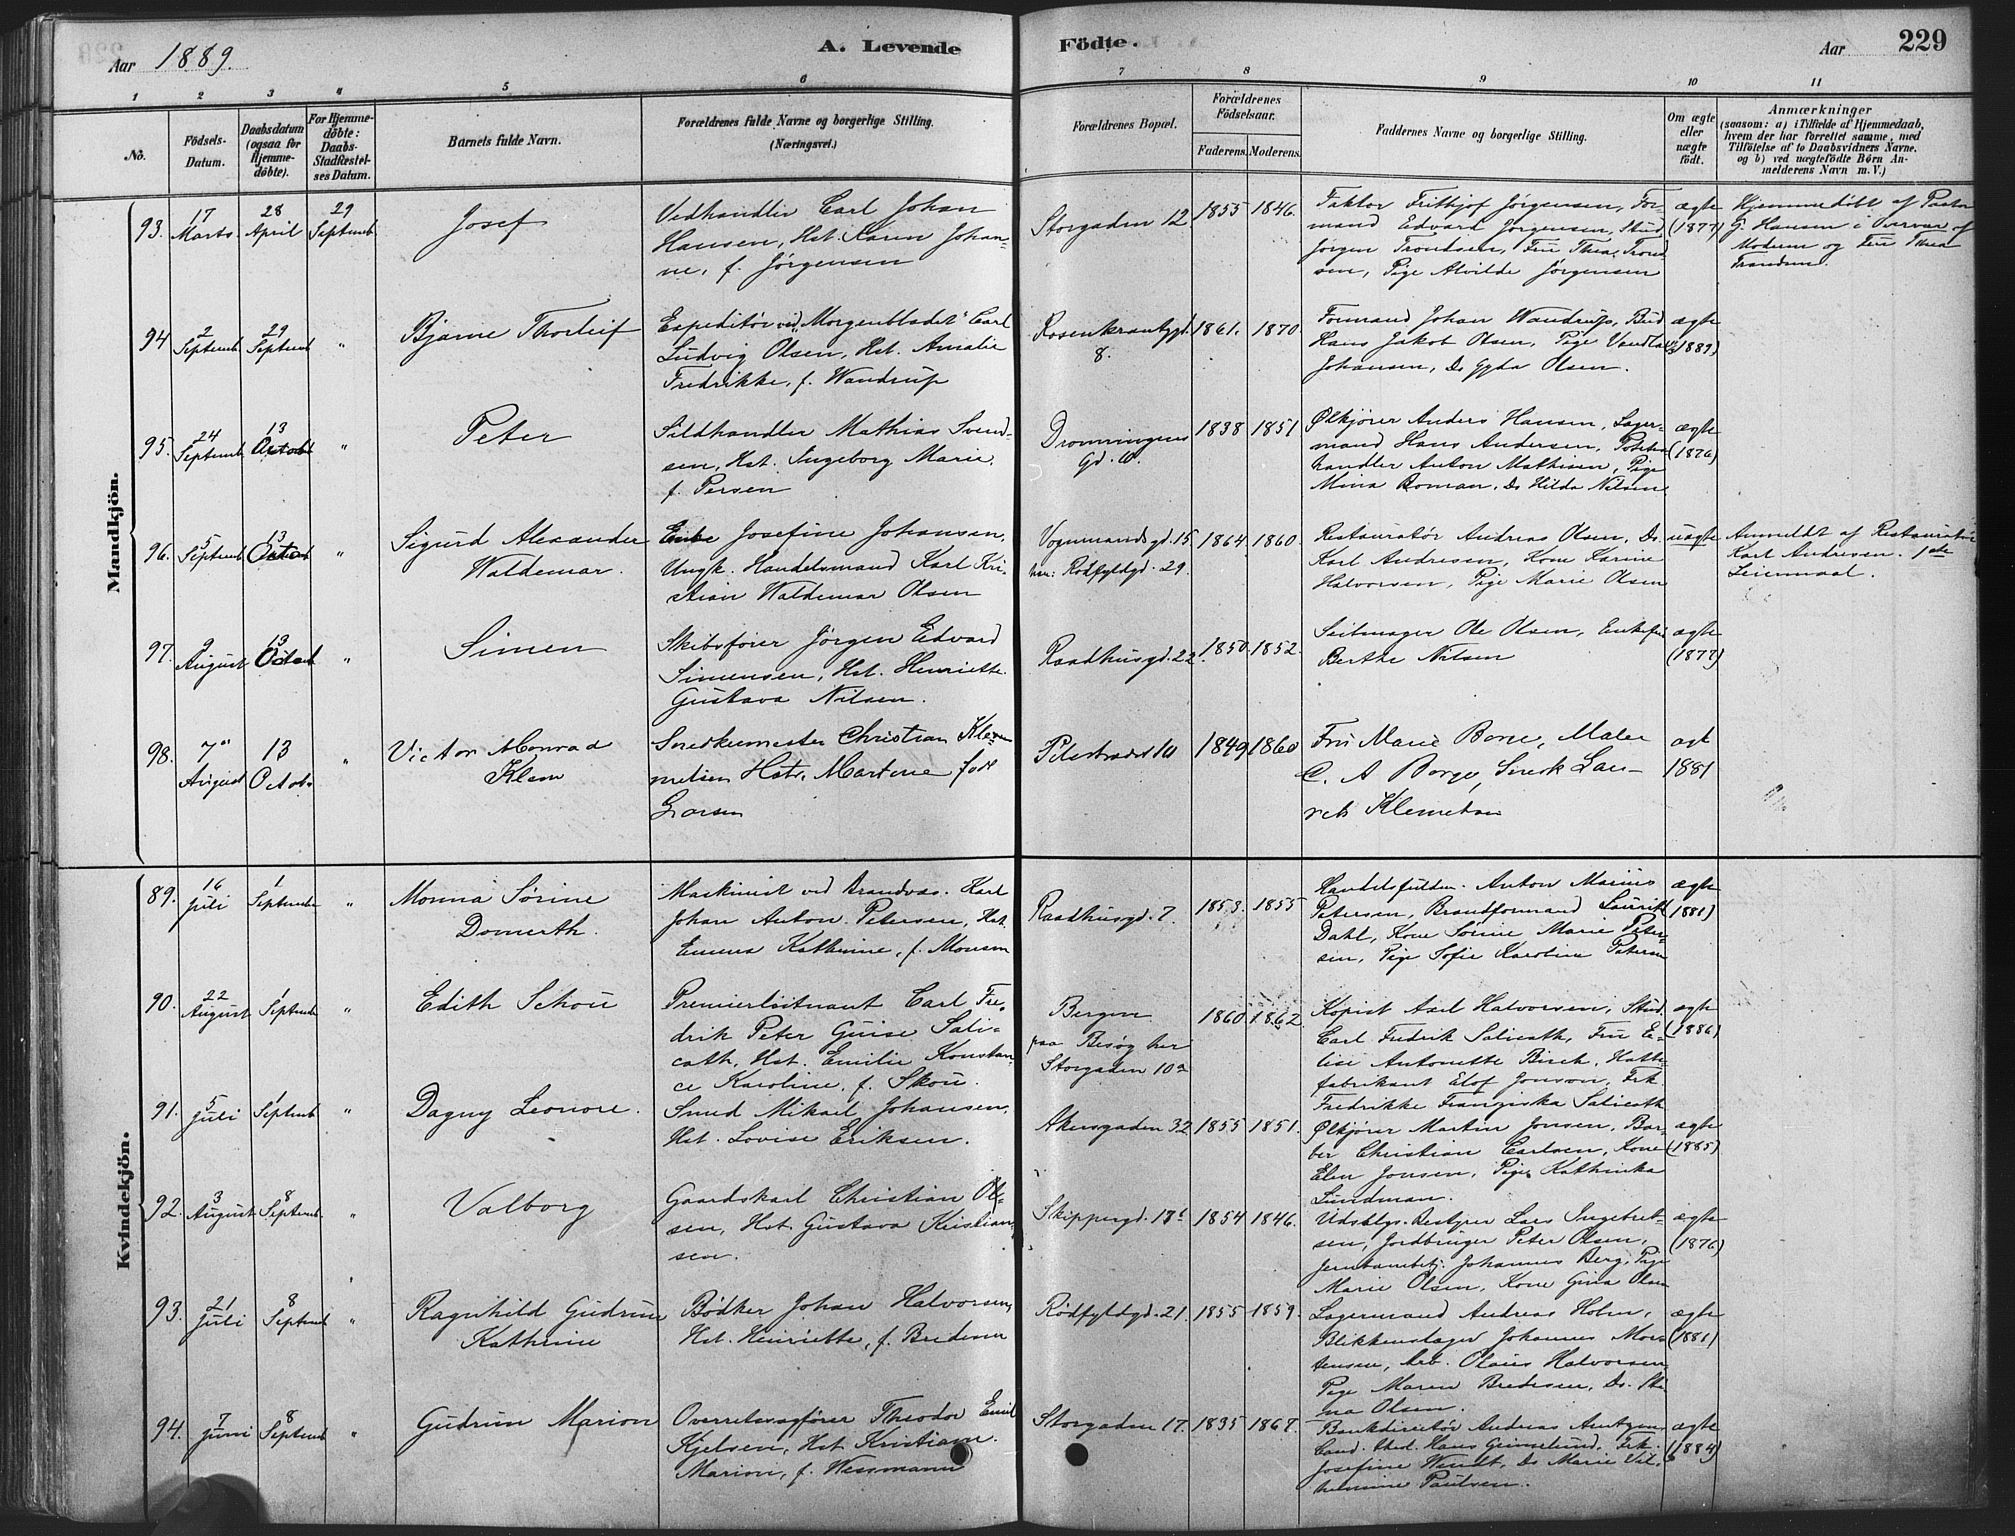 Aar 1889.
A. Levende Födte.
Aar
229
1 2 3 4 5 6 7 8 9 10 11
No.
Födsels-Datum.
Daabsdatum (ogsaa for Hjemme-döbte).
For Hjemme-döbte: Daabs-Stadfæstel-ses Datum.
Barnets fulde Navn.
Forældrenes fulde Navne og borgerlige Stilling. (Næringsvei.)
Forældrenes Bopæl.
Forældrenes Födselsaar.
Faderens. Moderens.
Faddernes Navne og borgerlige Stilling.
Om ægte eller uægte födt.
Anmærkninger
(saasom: a) i Tilfælde af Hjemmedaab, hvem der har forrettet samme, med Tilföielse af to Daabsvidners Navne, og b) ved uægtefödte Börn An-melderens Navn m. V.)
Mandkjön.
93. 17 Marts 28 April 29 Septemb Josef
Vedhandler Carl Johan
Hansen, Hst. Karen Johan-
ne, f. Jørgensen
Storgaden 12 1855 1846.
Faktor Frithjof Jørgensen, For-
mand Edvard Jørgensen, Stud
Jørgen Trondsen, Fru Thea Trond
sen, Pige Alvilde Jørgensen
ægte (1877)
Hjemmedöbt af Pastor
G. Hansen i Overvær af
Moderen og Fru Thea
Trondsen.
94 2 Septemb 29 Septemb " Bjarne Thorleif
Expeditør ved "Morgenbladet" Carl
Ludvig Olsen, Hst. Amalie
Fredrikke, f. Wandrup
Rosenkrantzgd. 8. 1861. 1870.
Formand Johan Wandrup, Bud
Hans Jakob Olsen, Pige
Johansen, Do Gyda Olsen.
ægte (1889)
95. 24 Septemb 13 Octob " Peter
Sildhandler Mathias Svend-
sen, Hst. Ingeborg Marie,
f. Persen
Dronningens Gd. 1838 1851
Ølkjører Anders Hansen, Lager-
mand Hans Andersen,
handler Anton Mathisen, Pige
Mina Boman, Do Hilda Nilsen
ægte (1876)
96. 5 Septemb 13 Octob " Sigurd Alexander
Waldemar.
Enke Josefine Johansen,
Ungk. Handelsmand Karl Kri-
stian Waldemar Olsen
Vognmandsgd. 15 Rødfyldgd. 29. 1864 1860.
Restauratør Andreas Olsen, Do
Karl Andresen, Kone Karine
Halvorsen, Pige Marie Olsen
uægte
Anmeldt af Restauratør
Karl Andresen. 1ste
Leiermaal.
97. 9 August 13 Octob " Simen
Skibsfører Jørgen Edvard
Simensen, Hst. Henriette
Gustava Nilsen.
Raadhusgd. 22 1850 1852.
Seilmager Ole Olsen, Enkefru
Berthe Nilsen
ægte (1877)
98. 7de August 13 Octob. " Victor Monrad
Klem
Snedkermester Christian Klem
metsen Hstr. Martine født
Larsen
Pilestrædet 10 1849 1860
Fru Marie Borse, Maler
C. A Borge, Snedk Lau-
rets Klemetsen
ægt 1881
Kvindekjön.
89. 16 Juli 1 Septembr " Monna Sørine
Domerth.
Maskinist ved Brandvæs. Karl
Johan Anton Petersen, Hst.
Emma Kathrine, f. Monsen
Raadhusgd. 7. 1853. 1855
Handelsfuldm. Anton Marius
Petersen, Brandformand Laurits
Dahl, Kone Sørine Marie Peter-
sen, Pige Sofie Karoline Petersen
ægte (1881)
90. 22 August 1 Septemb " Edith Schou
Premierløitnant Carl Fre-
drik Peter Guise Sali-
cath, Hst. Emilie Konstan-
ce Karoline, f. Skou.
Bergen
paa Besøg her
Storgaden 10a
1860 1862
Kopist Axel Halvorsen, Stud.
Carl Fredrik Salicath, Fru E-
lise Antonette Birch, Hatte-
fabrikant Elof Jonson, Frk.
Fredrikke Franziska Salicath
ægte (1886)
91. 5 Juli 1 Septemb " Dagny Leonore.
Smed Mikael Johansen,
Hst. Lovise Eriksen.
Akersgaden 32 1855 1851.
Ølkjører Martin Jonsen, Bar-
ber Christian Carlsen, Kone
Elen Jonsen, Pige Kathinka
Lundman.
ægte (1885)
92. 3 August 8 Septemb. " Valborg
Gaardskarl Christian Ol-
sen, Hst. Gustava Kristian-
sen.
Skippergd. 1854 1846.
Udsalgs-Bestyrer Lars Ingebret-
sen, Jordbruger Peter Olsen,
Jernbanebetj. Johannes Berg, Pige
Marie Olsen, Kone Gina Olsen
ægte (1876)
93. 21 Juli 8 Septemb " Ragnhild Gudrun
Kathrine
Bødker Johan Halvorsen,
Hst. Henriette, f. Bredesen
Rødfyldgd. 21. 1855 1859.
Lagermand Andreas Holm,
Blikkenslager Johannes Mor-
tensen, Arb. Olaus Halvorsen
Pige Maren Bredesen, Do. Sti
na Olsen.
ægte (1881)
94. 7 Juni 8 Septemb " Gudrun Marion
Overretssagfører Theodor Emil
Kjelsen, Hst Kristiane
Marion, f. Wessmann
Storgaden 17. 1835 1867.
Bankdirektør Andreas Arntzen
Cand. theol. Hans Grimelund, Frk.
Josefine Wendt, Do Marie Vil-
helmine Paulsen.
ægte (1884)